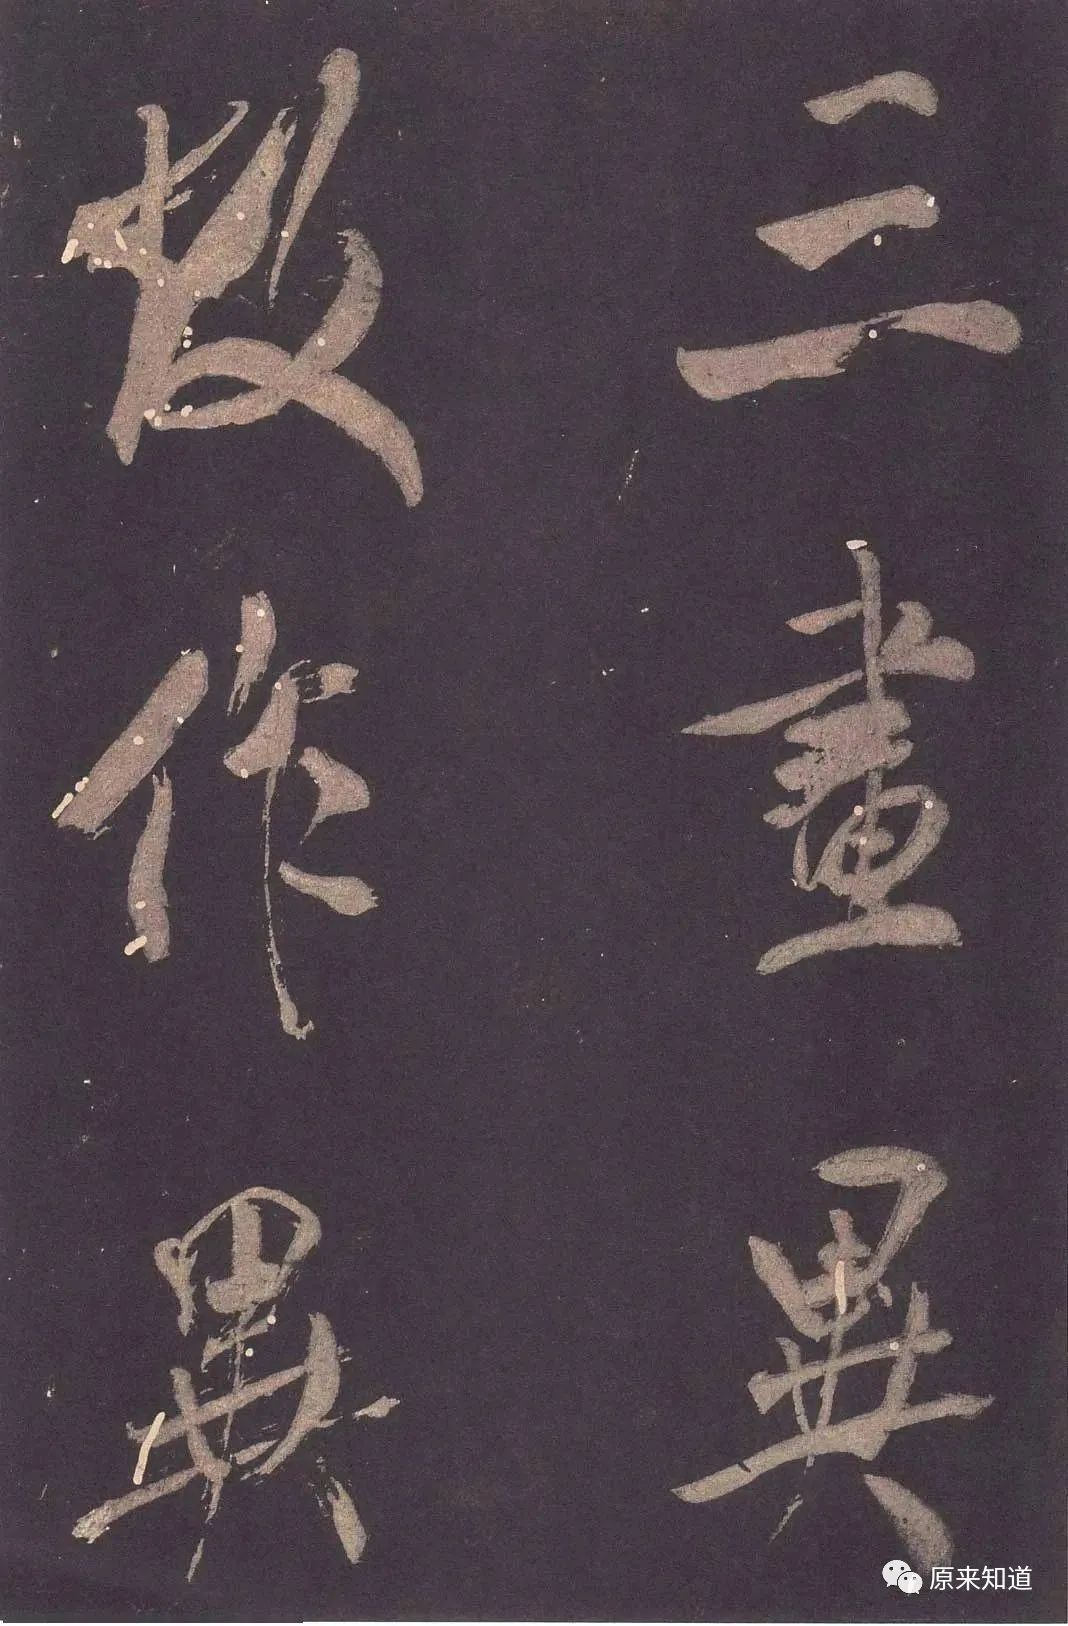 三畫異
故作異
原来知道